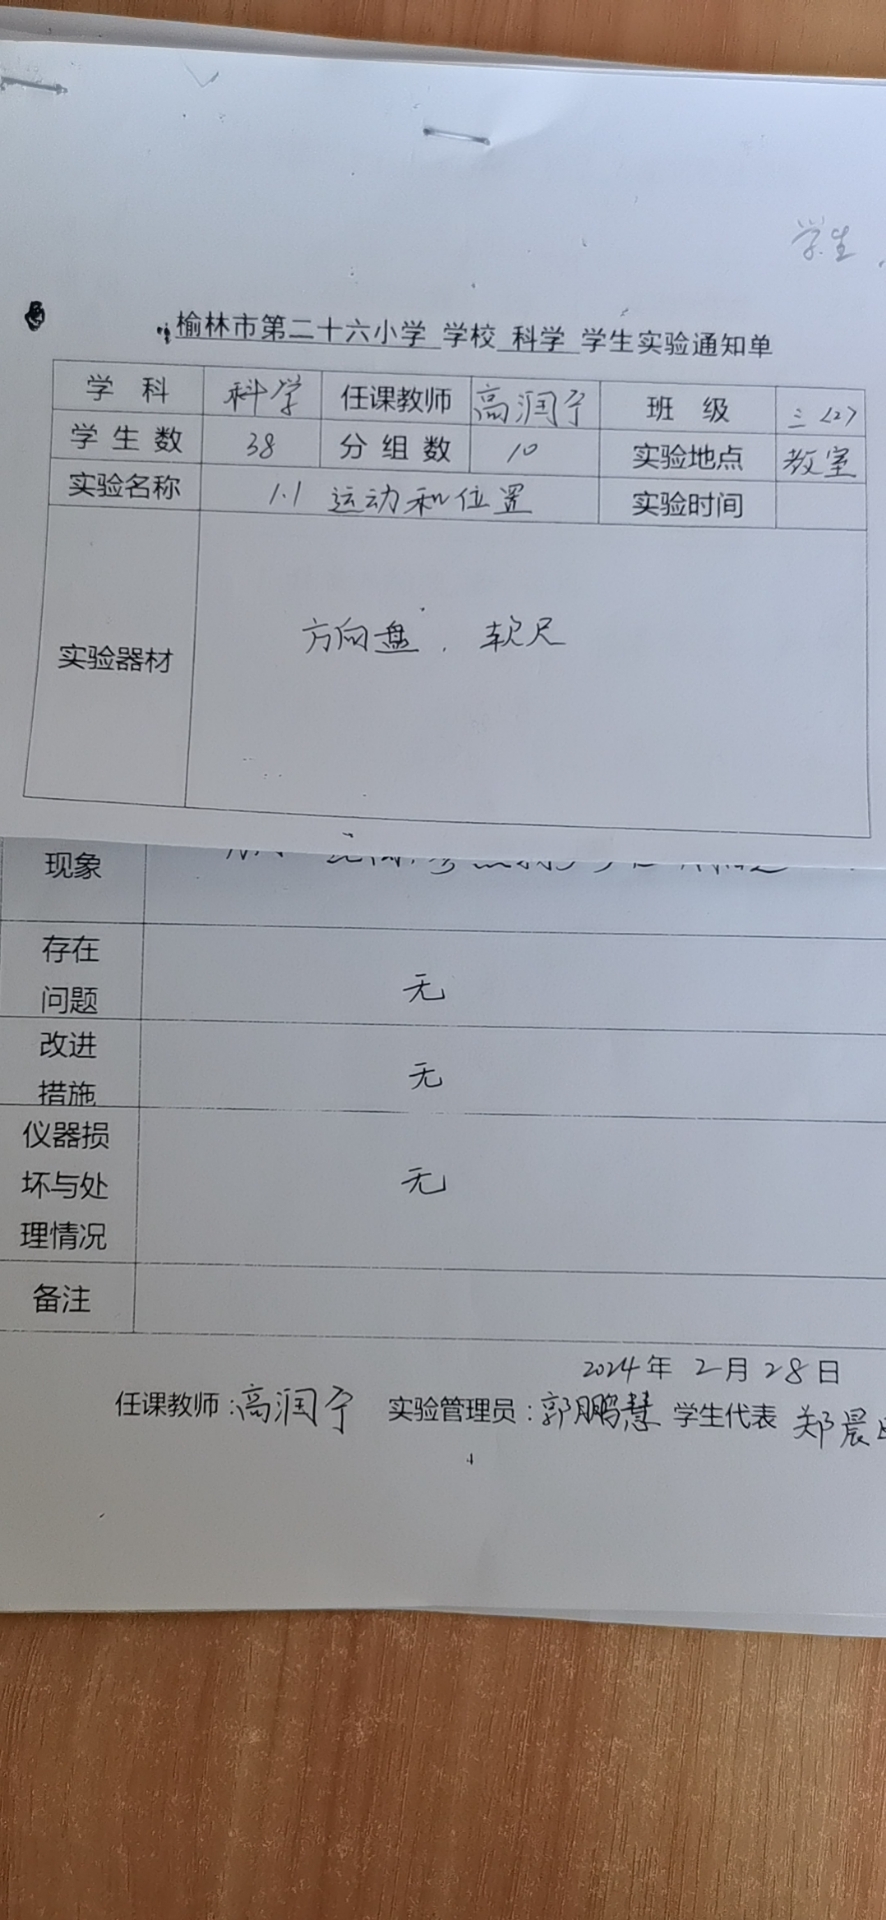 学生
榆林市第二十六小学 学校 科学 学生实验通知单
学 科 科学 任课教师 高润宁 班 级 三〈2〉
学 生 数 38 分 组 数 10 实验地点 教室
实验名称 1.1 运动和位置 实验时间
实验器材 方向盘、软尺
现象
存在
问题 无
改进
措施 无
仪器损
坏与处 无
理情况
备注
2024年 2月 28日
任课教师:高润宁 实验管理员:郭鹏慧 学生代表 郑晨
4